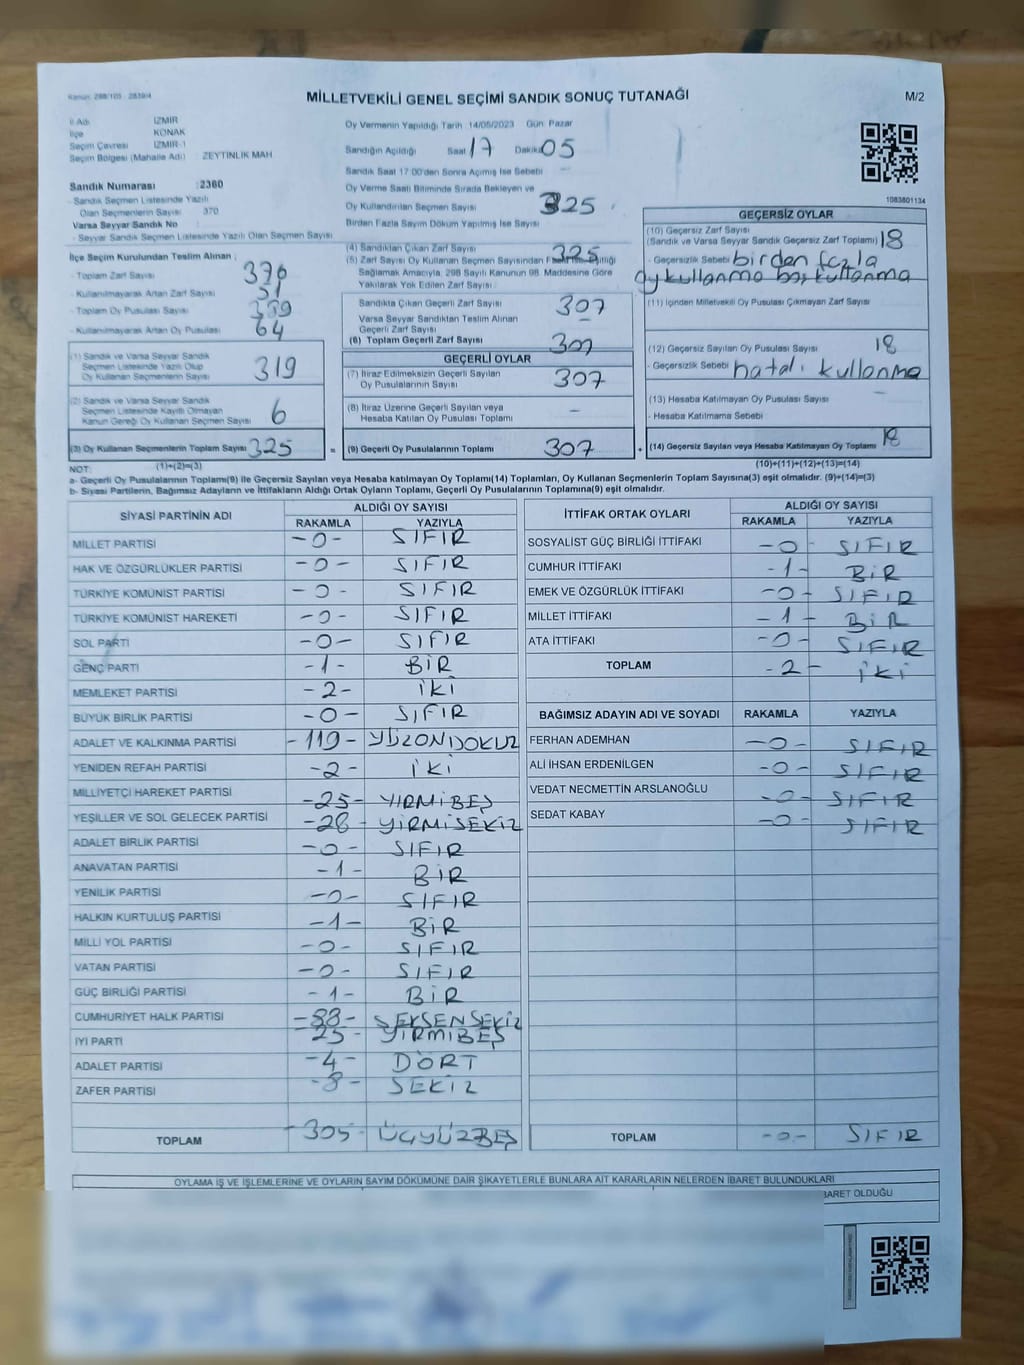 Kanun: 298/105 - 2839/4
MİLLETVEKİLİ GENEL SEÇİMİ SANDIK SONUÇ TUTANAĞI
M/2
İl Adı İZMİR
İlçe KONAK
Seçim Çevresi İZMİR-1
Seçim Bölgesi (Mahalle Adı) : ZEYTİNLİK MAH
Sandık Numarası :2360
- Sandık Seçmen Listesinde Yazılı
Olan Seçmenlerin Sayısı 370
Varsa Seyyar Sandık No :
- Seyyar Sandık Seçmen Listesinde Yazılı Olan Seçmen Sayısı
Oy Vermenin Yapıldığı Tarih :14/05/2023 Gün: Pazar
Sandığın Açıldığı Saat 17 Dakika 05
Sandık Saat 17:00'den Sonra Açılmış İse Sebebi
Oy Verme Saati Bitiminde Sırada Bekleyen ve
Oy Kullandırılan Seçmen Sayısı 325
Birden Fazla Sayım Döküm Yapılmış İse Sayısı
1083801134
İlçe Seçim Kurulundan Teslim Alınan ;
- Toplam Zarf Sayısı 376
- Kullanılmayarak Artan Zarf Sayısı 51
- Toplam Oy Pusulası Sayısı
- Kullanılmayarak Artan Oy Pusulası 64
(1) Sandık ve Varsa Seyyar Sandık
Seçmen Listesinde Yazılı Olup
Oy Kullanan Seçmenlerin Sayısı 319
(2) Sandık ve Varsa Seyyar Sandık
Seçmen Listesinde Kayıtlı Olmayan
Kanun Gereği Oy Kullanan Seçmen Sayısı 6
(3) Oy Kullanan Seçmenlerin Toplam Sayısı 325
(4) Sandıktan Çıkan Zarf Sayısı 325
(5) Zarf Sayısı Oy Kullanan Seçmen Sayısından Fazla İse, Eşitliği
Sağlamak Amacıyla, 298 Sayılı Kanunun 98. Maddesine Göre
Yakılarak Yok Edilen Zarf Sayısı
Sandıkta Çıkan Geçerli Zarf Sayısı 307
Varsa Seyyar Sandıktan Teslim Alınan
Geçerli Zarf Sayısı –
(6) Toplam Geçerli Zarf Sayısı 307
GEÇERLİ OYLAR
(7) İtiraz Edilmeksizin Geçerli Sayılan
Oy Pusulalarının Sayısı 307
(8) İtiraz Üzerine Geçerli Sayılan veya
Hesaba Katılan Oy Pusulası Toplamı –
= (9) Geçerli Oy Pusulalarının Toplamı 307 +
GEÇERSİZ OYLAR
(10) Geçersiz Zarf Sayısı
(Sandık ve Varsa Seyyar Sandık Geçersiz Zarf Toplamı) 18
- Geçersizlik Sebebi birden fazla
oy kullanma boş kullanma
(11) İçinden Milletvekili Oy Pusulası Çıkmayan Zarf Sayısı
(12) Geçersiz Sayılan Oy Pusulası Sayısı 18
- Geçersizlik Sebebi hatalı kullanma
(13) Hesaba Katılmayan Oy Pusulası Sayısı –
- Hesaba Katılmama Sebebi
(14) Geçersiz Sayılan veya Hesaba Katılmayan Oy Toplamı 18
NOT: (1)+(2)=(3)
(10)+(11)+(12)+(13)=(14)
a- Geçerli Oy Pusulalarının Toplamı(9) ile Geçersiz Sayılan veya Hesaba katılmayan Oy Toplamı(14) Toplamları, Oy Kullanan Seçmenlerin Toplam Sayısına(3) eşit olmalıdır. (9)+(14)=(3)
b- Siyasi Partilerin, Bağımsız Adayların ve İttifakların Aldığı Ortak Oyların Toplamı, Geçerli Oy Pusulalarının Toplamına(9) eşit olmalıdır.
SİYASİ PARTİNİN ADI ALDIĞI OY SAYISI
RAKAMLA YAZIYLA
MİLLET PARTİSİ -0- SIFIR
HAK VE ÖZGÜRLÜKLER PARTİSİ -0- SIFIR
TÜRKİYE KOMÜNİST PARTİSİ -0- SIFIR
TÜRKİYE KOMÜNİST HAREKETİ -0- SIFIR
SOL PARTİ -0- SIFIR
GENÇ PARTİ -1- BİR
MEMLEKET PARTİSİ -2- İKİ
BÜYÜK BİRLİK PARTİSİ -0- SIFIR
ADALET VE KALKINMA PARTİSİ -119- YÜZONDOKUZ
YENİDEN REFAH PARTİSİ -2- İKİ
MİLLİYETÇİ HAREKET PARTİSİ -25- YİRMİBEŞ
YEŞİLLER VE SOL GELECEK PARTİSİ -28- YİRMİSEKİZ
ADALET BİRLİK PARTİSİ -0- SIFIR
ANAVATAN PARTİSİ -1- BİR
YENİLİK PARTİSİ -0- SIFIR
HALKIN KURTULUŞ PARTİSİ -1- BİR
MİLLİ YOL PARTİSİ -0- SIFIR
VATAN PARTİSİ -0- SIFIR
GÜÇ BİRLİĞİ PARTİSİ -1- BİR
CUMHURİYET HALK PARTİSİ -88- SEKSENSEKİZ
İYİ PARTİ 25- YİRMİBEŞ
ADALET PARTİSİ -4- DÖRT
ZAFER PARTİSİ -8- SEKİZ
TOPLAM -305- ÜÇYÜZBEŞ
İTTİFAK ORTAK OYLARI ALDIĞI OY SAYISI
RAKAMLA YAZIYLA
SOSYALİST GÜÇ BİRLİĞİ İTTİFAKI -0- SIFIR
CUMHUR İTTİFAKI -1- BİR
EMEK VE ÖZGÜRLÜK İTTİFAKI -0- SIFIR
MİLLET İTTİFAKI -1- BİR
ATA İTTİFAKI -0- SIFIR
TOPLAM -2- İKİ
BAĞIMSIZ ADAYIN ADI VE SOYADI RAKAMLA YAZIYLA
FERHAN ADEMHAN -0- SIFIR
ALİ İHSAN ERDENİLGEN -0- SIFIR
VEDAT NECMETTİN ARSLANOĞLU -0- SIFIR
SEDAT KABAY -0- SIFIR
TOPLAM -0- SIFIR
OYLAMA İŞ VE İŞLEMLERİNE VE OYLARIN SAYIM DÖKÜMÜNE DAİR ŞİKAYETLERLE BUNLARA AİT KARARLARIN NELERDEN İBARET BULUNDUKLARI
BARET OLDUĞU